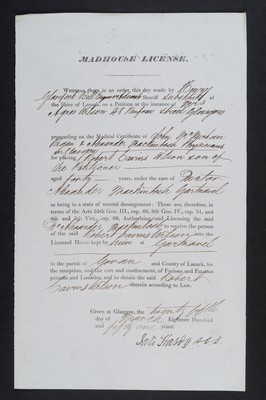 MADHOUSE LICENSE.
WHEREAS there is an order, this day made by Henry
Glassford Bell Esquire Advocate Sheriff Substitute of
the Shire of Lanark, on a Petition at the instance of Mrs
Agnes Wilson 48 Renfrew Street Glasgow
proceeding on the Medical Certificate of John
and Alexander Mackintosh Physicians
in Glasgow
for placing Robert Cairns Wilson son of
the Petitioner
aged years, under the care of Doctor
Alexander Mackintosh Gartnavel
as being in a state of mental derangement: These are, therefore, in
terms of the Acts 55th Geo. III., cap. 69, 9th Geo. IV., cap. 34, and
4th and 5th Vict., cap. 60, Authorising and Licensing the said
Dr Alexander Mackintosh to receive the person
of the said Robert Cairns Wilson into the
Licensed House kept by him at Gartnavel
in the parish of Govan and County of Lanark, for
the reception, and the care and confinement, of Furious and Fatuous
persons and Lunatics, and to detain the said Robert
Cairns Wilson therein according to Law.
Given at Glasgow, the twenty fifth
day of March Eighteen Hundred
and fifty one years.